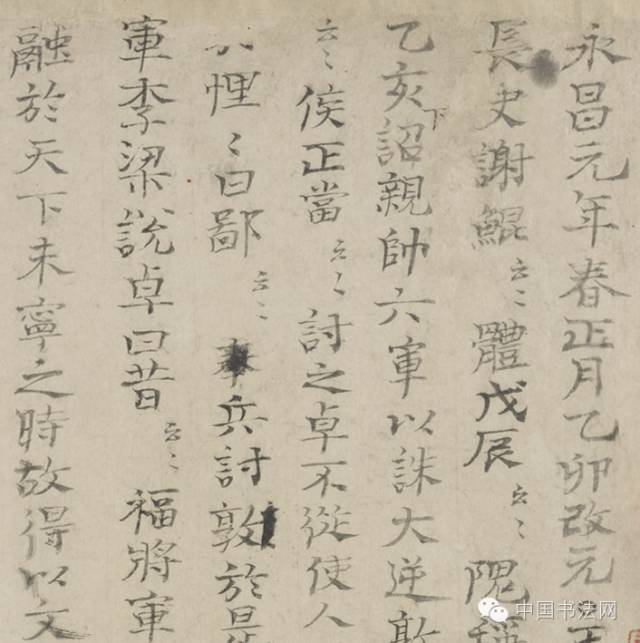 永昌元年春正月乙卯改元
長史謝鯤云〻體戊辰云〻隗
乙亥下詔親帥六軍以誅大逆敦
云〻侯正當云〻討之卓不從使人
狸〻曰鄙云〻奉兵討敦於是
軍李梁說卓曰昔云〻福將軍
融於天下未寧之時故得以文
中国书法网